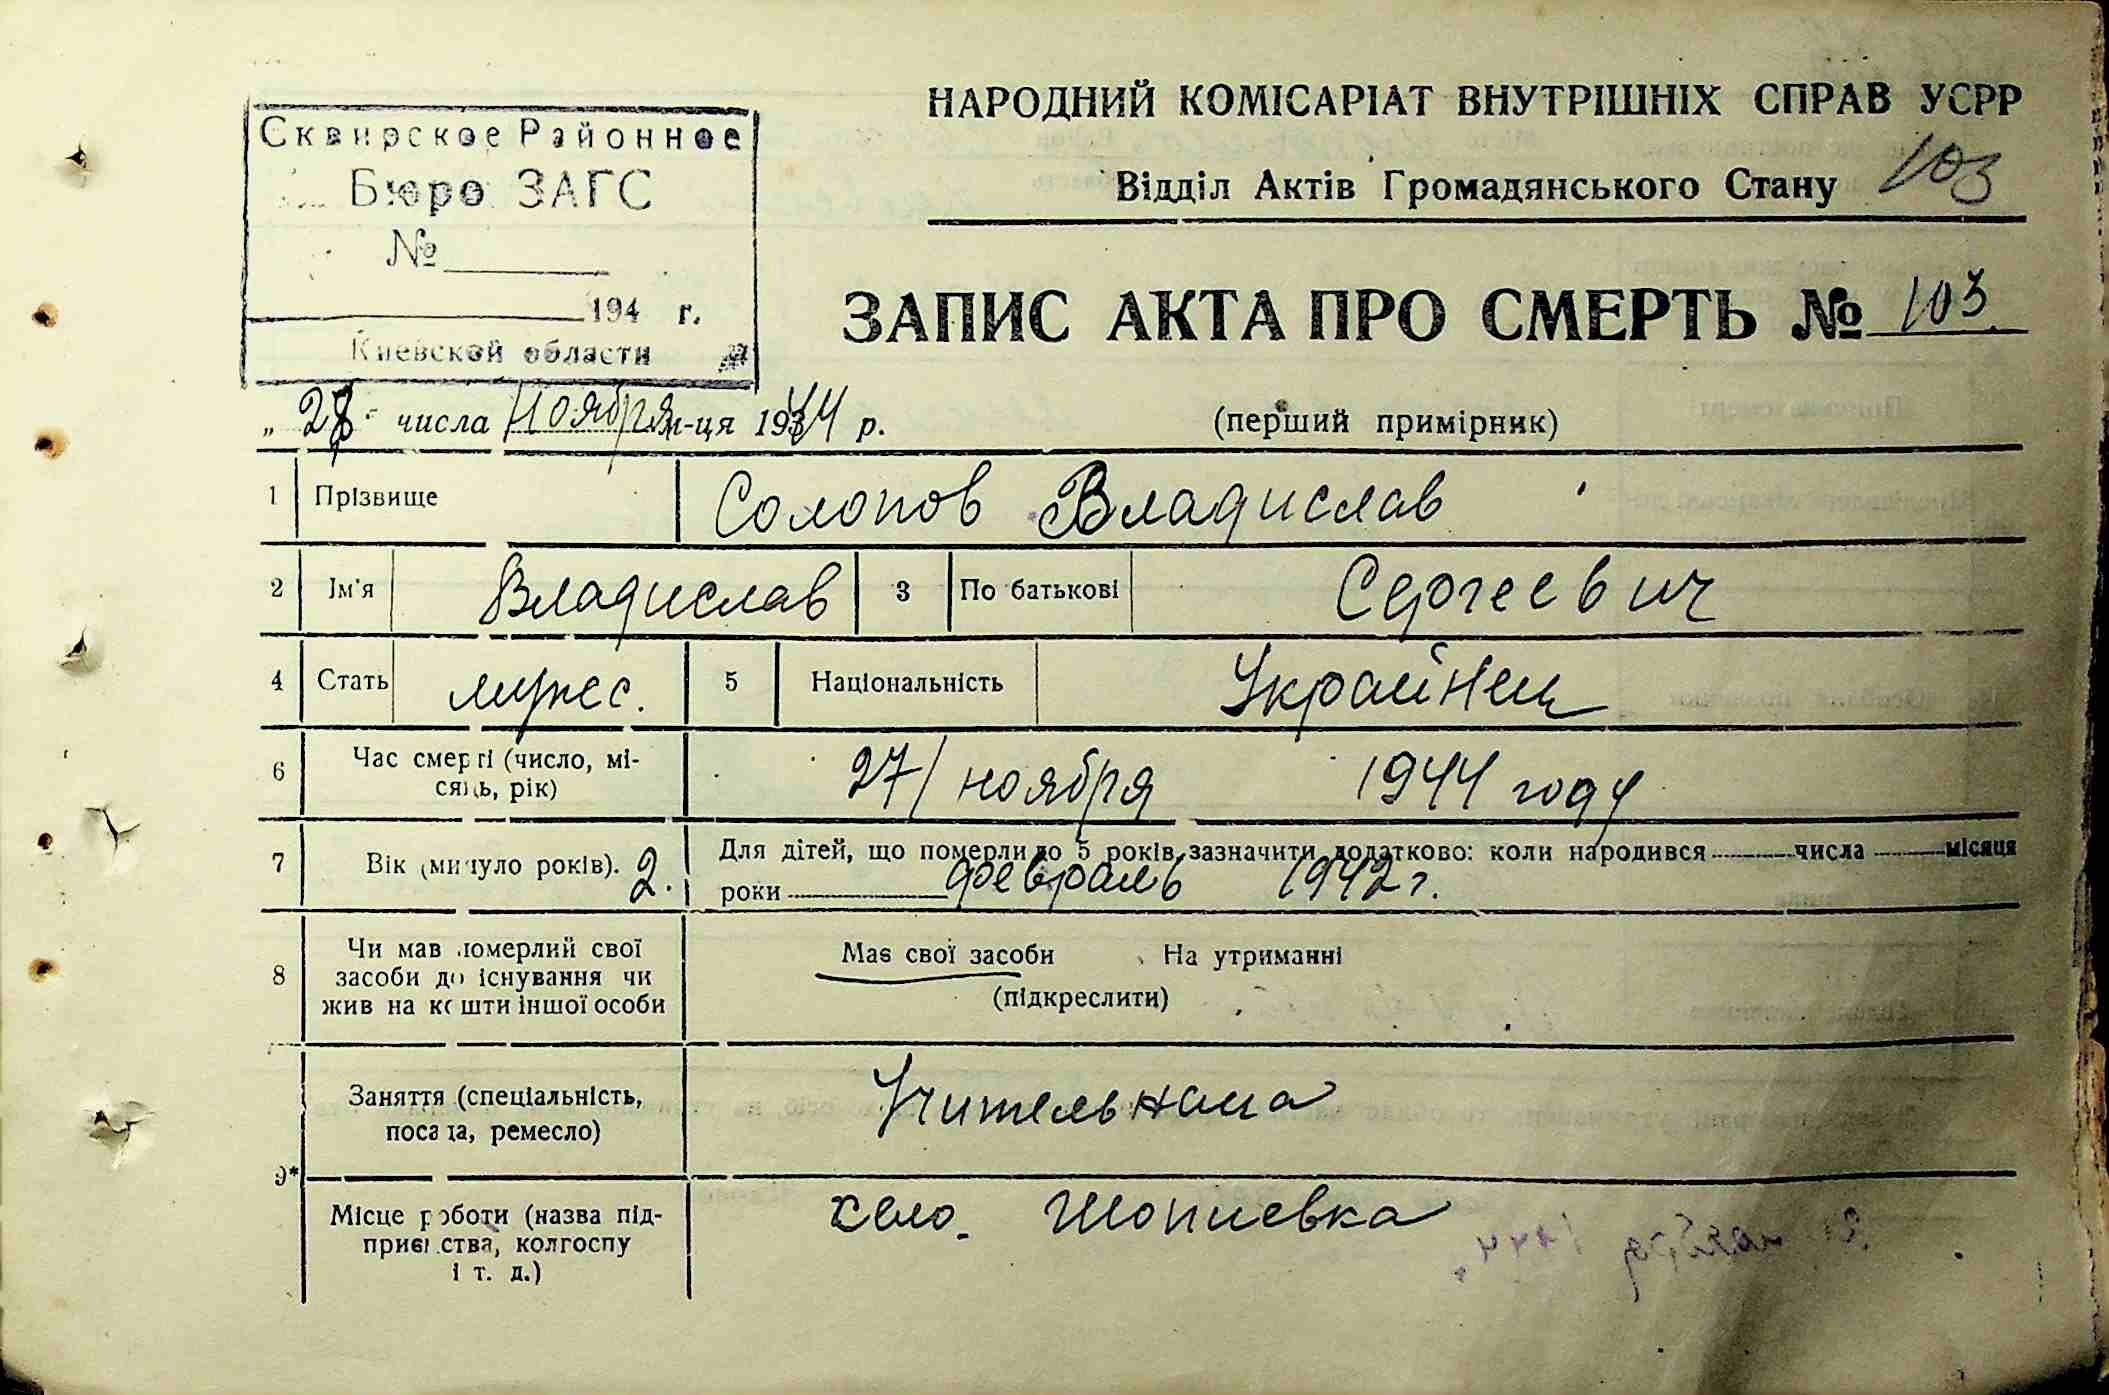 Сквирское Районное
Бюро ЗАГС
№
194 г.
Киевской области
НАРОДНИЙ КОМІСАРІАТ ВНУТРІШНІХ СПРАВ УСРР
Відділ Актів Громадянського Стану 103
ЗАПИС АКТА ПРО СМЕРТЬ № 103.
„ 28 числа Ноября м-ця 1944 р. (перший примірник)
1 Прізвище Солопов Владислав
2 Ім'я Владислав 3 По батькові Сергеевич
4 Стать мужес. 5 Національність Украйнец
6 Час смерті (число, мі-
сяць, рік) 27/ ноября 1944 году
7 Вік (минуло років). 2. Для дітей, що померли до 5 років, зазначити додатково: коли народився числа місяця
роки февраль 1942 г.
8 Чи мав померлий свої
засоби до існування чи
жив на кошти іншої особи
Має свої засоби На утриманні
(підкреслити)
9*
Заняття (спеціальність,
посада, ремесло)
Місце роботи (назва під-
приємства, колгоспу
і т. д.)
село.